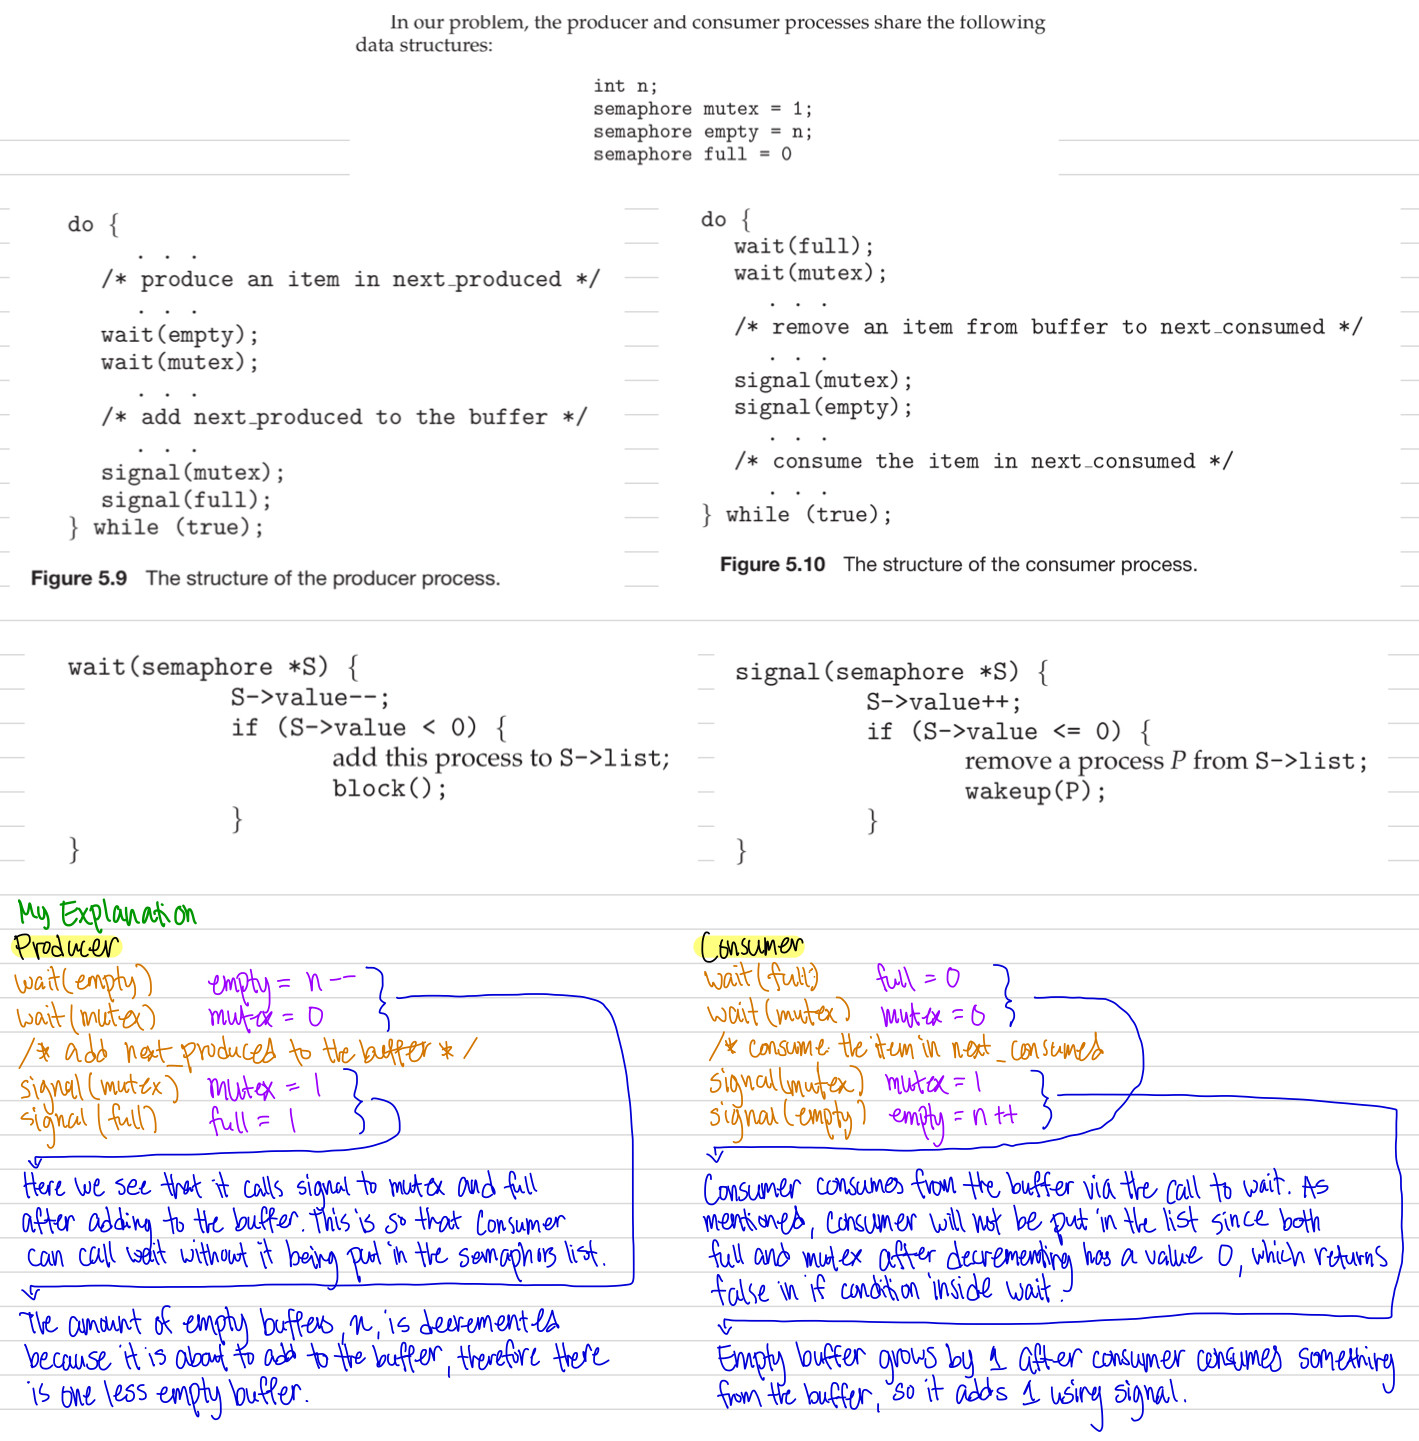 In our problem, the producer and consumer processes share the following
data structures:
int n;
semaphore mutex = 1;
semaphore empty = n;
semaphore full = 0
do {
. . .
/* produce an item in next_produced */
. . .
wait(empty);
wait(mutex);
. . .
/* add next_produced to the buffer */
. . .
signal(mutex);
signal(full);
} while (true);
Figure 5.9 The structure of the producer process.
do {
wait(full);
wait(mutex);
. . .
/* remove an item from buffer to next_consumed */
. . .
signal(mutex);
signal(empty);
. . .
/* consume the item in next_consumed */
. . .
} while (true);
Figure 5.10 The structure of the consumer process.
wait(semaphore *S) {
S->value--;
if (S->value < 0) {
add this process to S->list;
block();
}
}
signal(semaphore *S) {
S->value++;
if (S->value <= 0) {
remove a process P from S->list;
wakeup(P);
}
}
My Explanation
Producer
wait(empty) empty = n--
wait(mutex) mutex = 0
/* add next_produced to the buffer */
signal(mutex) mutex = 1
signal(full) full = 1
Here we see that it calls signal to mutex and full
after adding to the buffer. This is so that Consumer
can call wait without it being put in the semaphors list.
The amount of empty buffers, n, is decremented
because it is about to add to the buffer, therefore there
is one less empty buffer.
Consumer
wait(full) full = 0
wait(mutex) mutex = 0
/* consume the item in next_consumed
signal(mutex) mutex = 1
signal(empty) empty = n++
Consumer consumes from the buffer via the call to wait. As
mentioned, consumer will not be put in the list since both
full and mutex after decrementing has a value 0, which returns
false in if condition inside wait.
Empty buffer grows by 1 after consumer consumes something
from the buffer, so it adds 1 using signal.